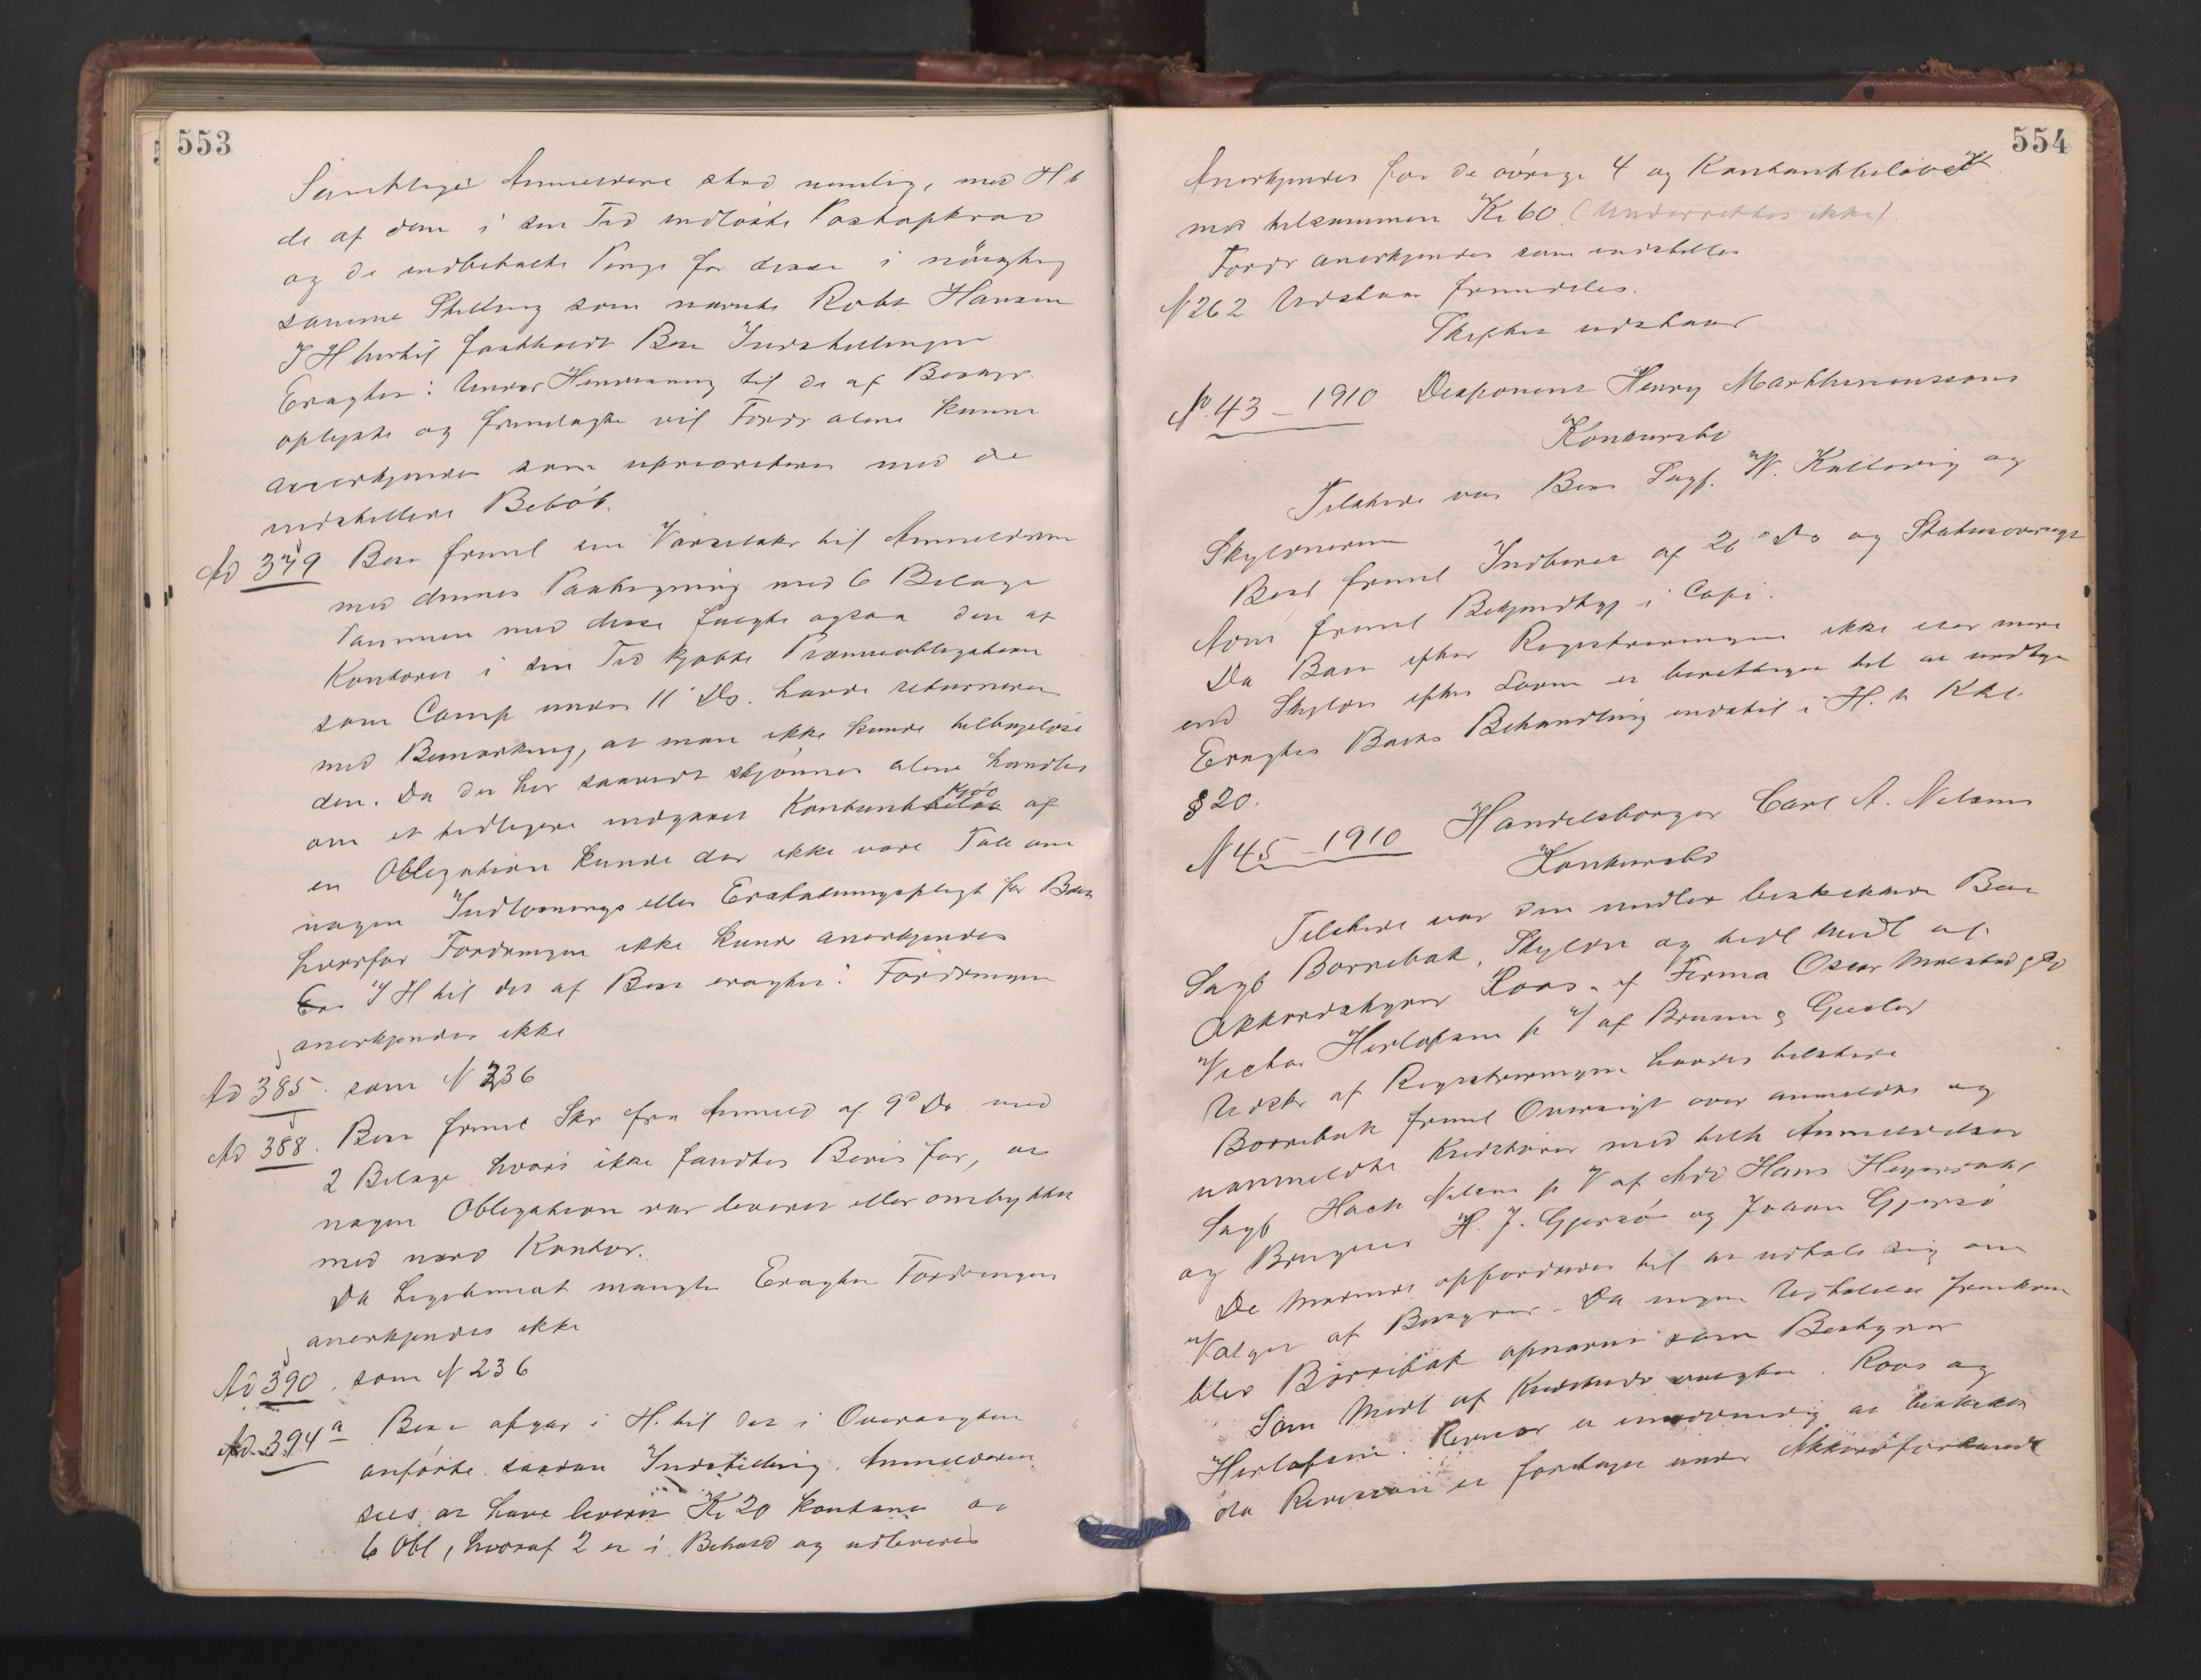 553
Samtlige Anmeldere stod nemlig, med Ht
de af dem i sin Tid indløste Postopkrav
og de indbetalte Penge for disse i nøiagtig
samme Stilling som nævnte Robt Hansen
I H hertil fastholdt Best Indstillingen
Eragtes: Under Henvisning til de af Bestyr.
oplyste og fremlagte vil Fordr alene kunne
anerkjendes som uprioriteret med de
indstillede Beløb.
Ad 349 Best freml en Varselsskr til Anmelderen
med dennes Paategning med 6 Bilage
Sammen med disse fulgte ogsaa den af
Kontoret i sin Tid kjøbte Præmieobligation
som Comp under 11 ds. havde returneret
med Bemærkning, at man ikke kunde tilbageløse
den. Da det her saavidt skjønnes alene handles
om et tidligere indgaaet Kontantkjøb af
en Obligation kunde der ikke være Tale om
nogen Indløsnings eller Erstatningspligt for Boet
hvorfor Fordringen ikke kunde anerkjendes
I H til det af Best eragtes: Fordringen
anerkjendes ikke
Ad 385. som N 236
Ad 388. Best freml Skr fra Anmeld af 9 ds med
2 Bilage hvori ikke fandtes Bevis for, at
nogen Obligation var leveret eller ombyttet
med nævnte Kontor.
Da Legitimat mangler Eragtes Fordringen
anerkjendes ikke
Ad 390. som N 236
Ad 394 a Best afgav i H. til det i Oversigten
anførte saadan Indstilling. Anmelderen
sees at have leveret Kr 20 kontant og
6 Obl, hvoraf 2 er i Behold og udleveres
554
Anerkjendes for de øvrige 4 og Kontantbeløbet
med tilsammen Kr 60 (Underrettes ikke).
Fordr anerkjendes som indstillet
N 262 Udstaar fremdeles.
Skiftet udstaar
No. 43 – 1910 Disponent Henry Marthinussens
Konkursbo
Tilstede var Best Sagf. W. Kallevig og
Skyldneren
Best freml Indberet af 26 ds og Statusoversigt
Adm freml Bekjendtg i Copi.
Da Boet efter Registreringen ikke eier mere
end Skyldn efter Loven er berettiget til at undtage
Eragtes Boets Behandling indstil i H. t. Kkl.
§ 20.
N 45 – 1910 Handelsborger Carl A. Nilsens
Konkursbo
Tilstede var den midler beskikkede Best
Sagf Borrebæk, Skyldn og tidl Medl af
Akkordstyret Roos af Firma Oscar &Co
Victor Herlofsen p V af Bruun &
Udskr af Registreringen havdes tilstede
Borrebæk freml Oversigt over anmeldte og
uanmeldte Kreditorer med endel Anmeldelser
Sagf Nilsen p V af Hans
og Brugerne H. J. Gjersø og Johan Gjersø
De Mødende opfordredes til at udtale sig om
Valget af Bestyrer. Da ingen Udtalelse fremkom
blev Borrebæk opnævnt som Bestyrer
Som Medl af Kreditudv valgtes Roos og
Herlofsen. Revisor er unødvendig at beskikke
da Revision er foretaget under Akkordforhandl